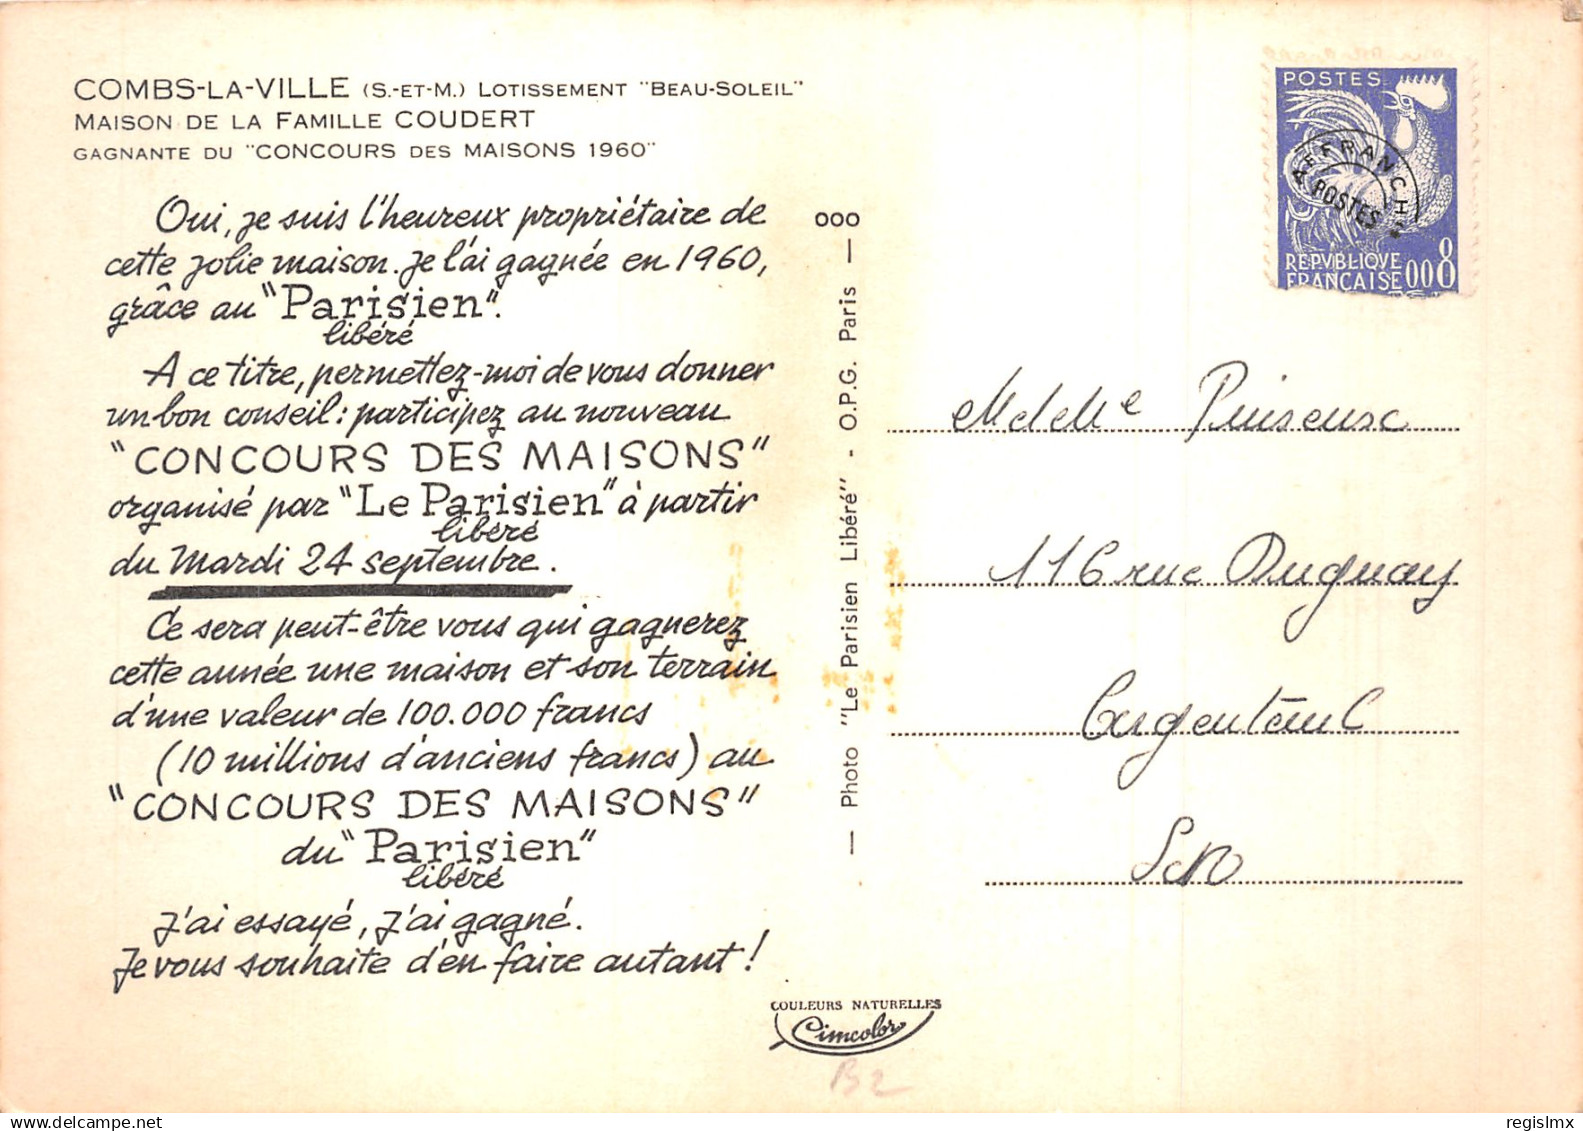 COMBS-LA-VILLE (S.-ET-M.) LOTISSEMENT "BEAU-SOLEIL"
MAISON DE LA FAMILLE COUDERT
GAGNANTE DU "CONCOURS DES MAISONS 1960"
Oui, je suis l'heureux propriétaire de
cette jolie maison. Je l'ai gagnée en 1960,
grâce au "Parisien".
libéré
A ce titre, permettez-moi de vous donner
un bon conseil : participez au nouveau
"CONCOURS DES MAISONS"
organisé par "Le Parisien" à partir
libéré
du Mardi 24 septembre.
Ce sera peut-être vous qui gagnerez
cette année une maison et son terrain
d'une valeur de 100.000 francs
(10 millions d'anciens francs) au
"CONCOURS DES MAISONS"
du "Parisien"
libéré
J'ai essayé, j'ai gagné.
Je vous souhaite d'en faire autant !
000
— Photo "Le Parisien Libéré" - O.P.G. Paris —
COULEURS NATURELLES
Cimcolor
B2
POSTES
AFFRANCHts
POSTES
REPVBLIQVE
FRANCAISE 008
M et Me Puiseux
116 rue Duguay
Argenteuil
S et O
www.delcampe.net
regislmx